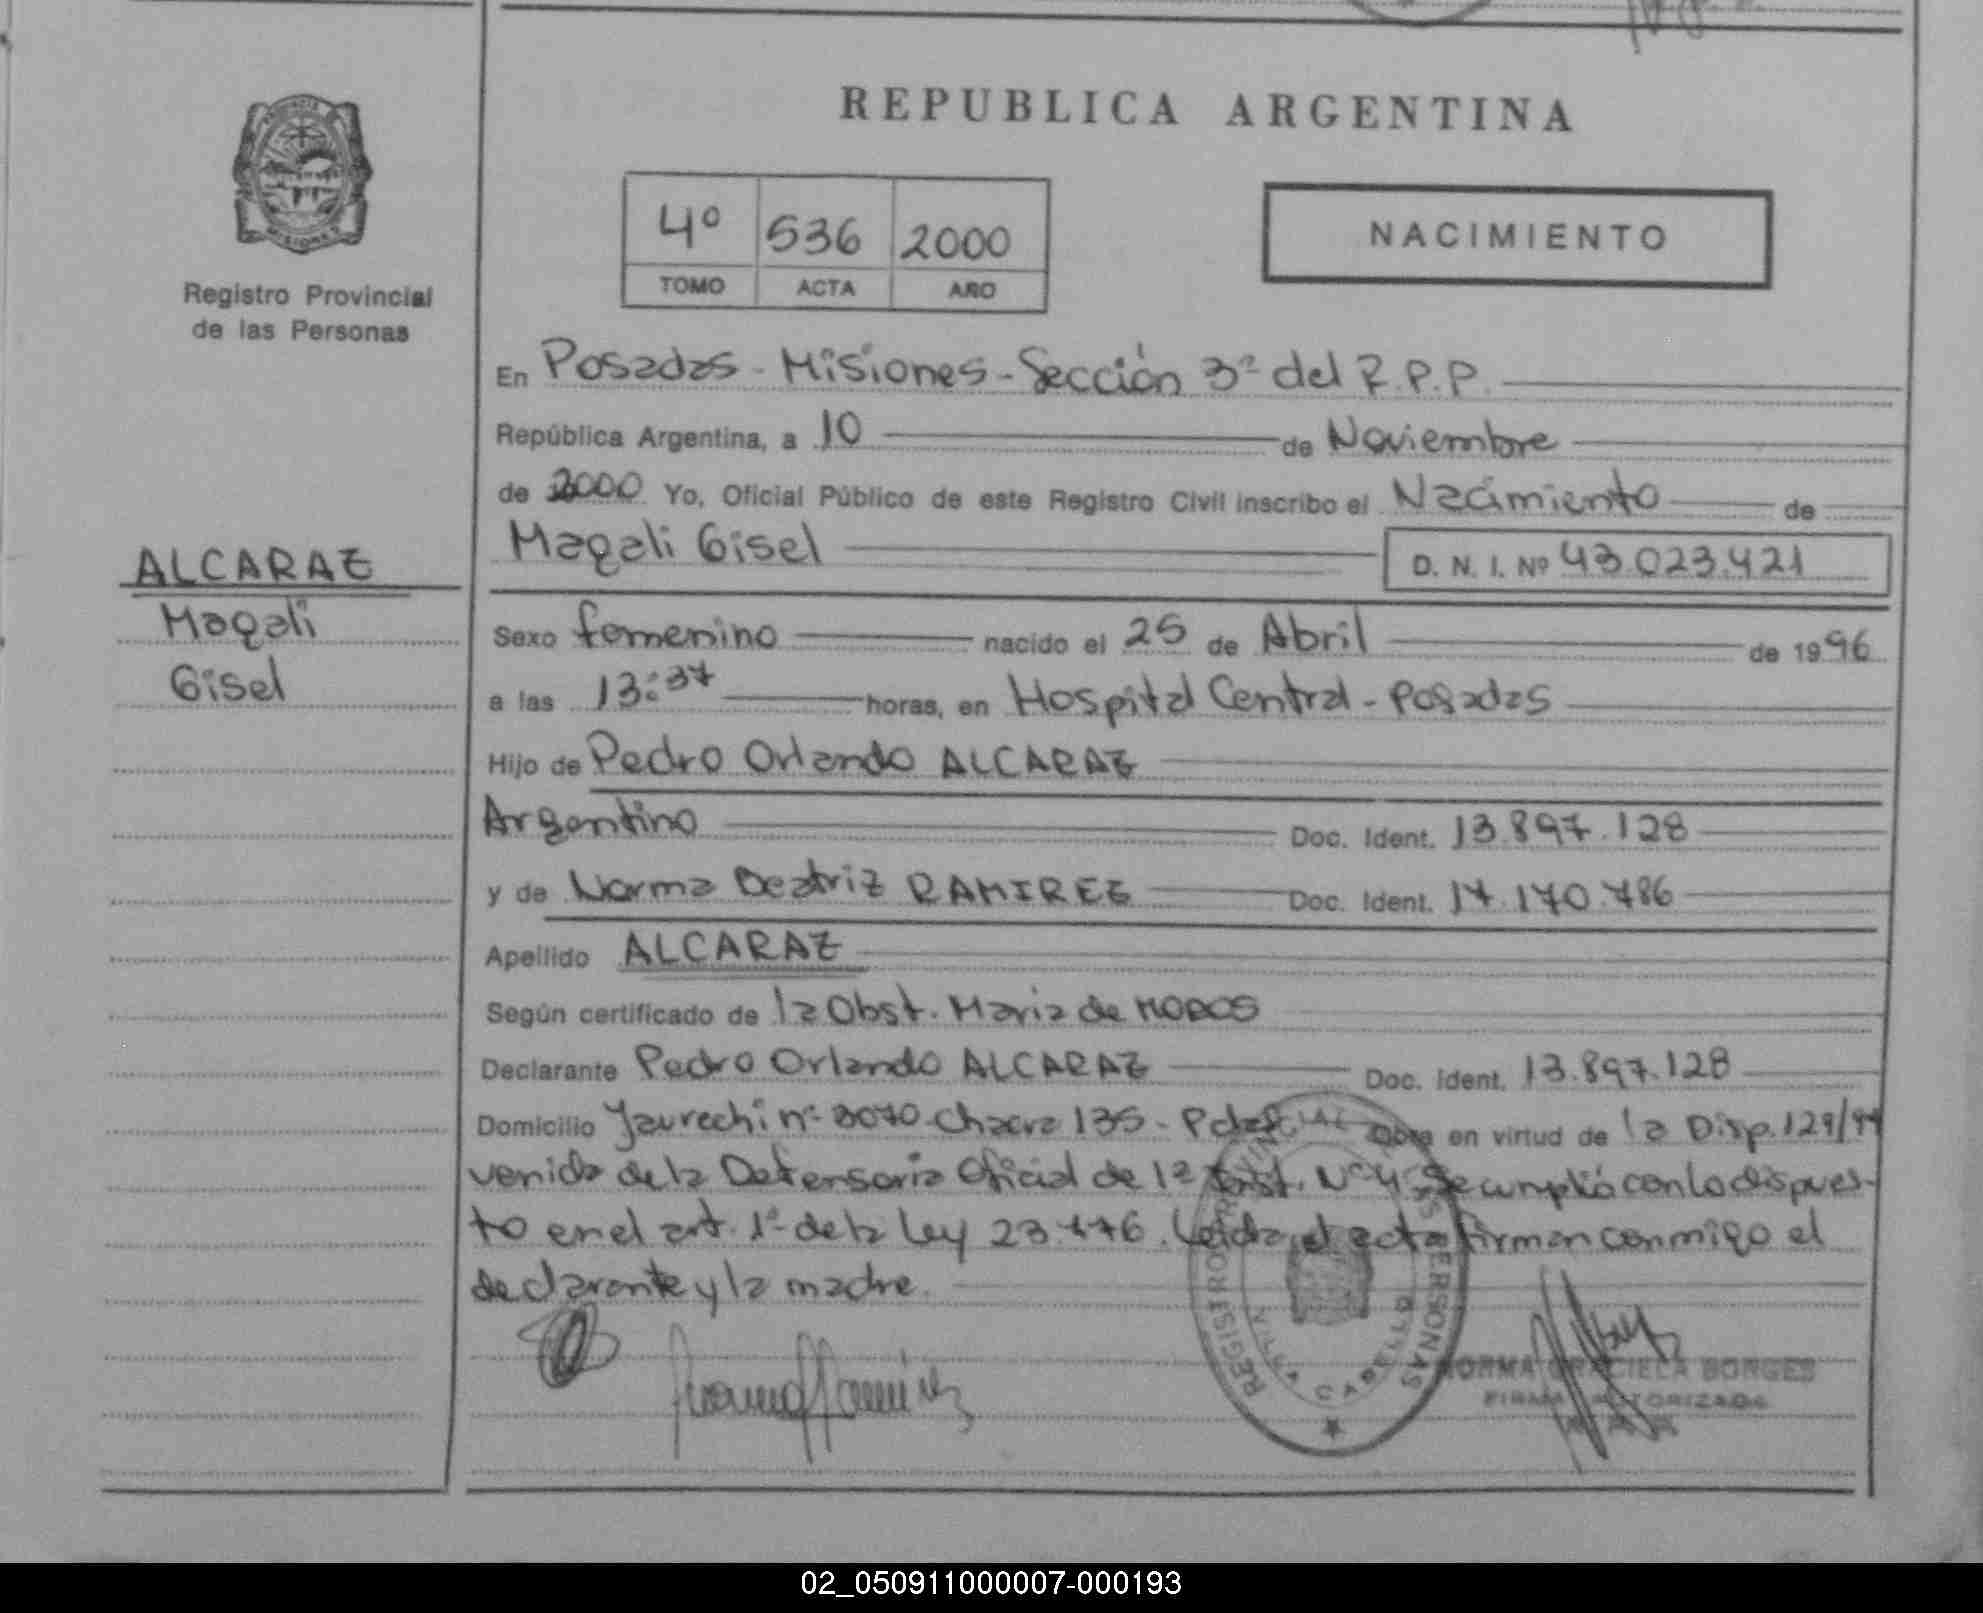 REPUBLICA ARGENTINA
4º 536 2000
TOMO ACTA AÑO
NACIMIENTO
PROVINCIA DE
MISIONES
Registro Provincial
de las Personas
ALCARAZ
Magali
Gisel
En Posadas - Misiones - Sección 3ª del R.P.P.
República Argentina, a 10 de Noviembre
de 2000 Yo, Oficial Público de este Registro Civil inscribo el Nacimiento de
Magali Gisel D. N. I. Nº 43.023.421
Sexo femenino nacido el 25 de Abril de 1996
a las 13:37 horas, en Hospital Central - Posadas
Hijo de Pedro Orlando ALCARAZ
Argentino Doc. Ident. 13.897.128
y de Norma Beatriz RAMIREZ Doc. Ident. 17.170.786
Apellido ALCARAZ
Según certificado de la Obst. Maria de
Declarante Pedro Orlando ALCARAZ Doc. Ident. 13.897.128
Domicilio Yaurechi nº 3070 Chacra 135 - Pdas Obra en virtud de la Disp. 129/
venida de la Defensoria Oficial de 1ª Inst. Nº 4. Se cumplió con lo dispues-
to en el art. 1º de la Ley 23.776. Leida el acta firman conmigo el
declarante y la madre.
REGISTRO PROVINCIAL DE LAS PERSONAS
VILLA CABELLO
NORMA GRACIELA BORGES
FIRMA AUTORIZADA
02_050911000007-000193